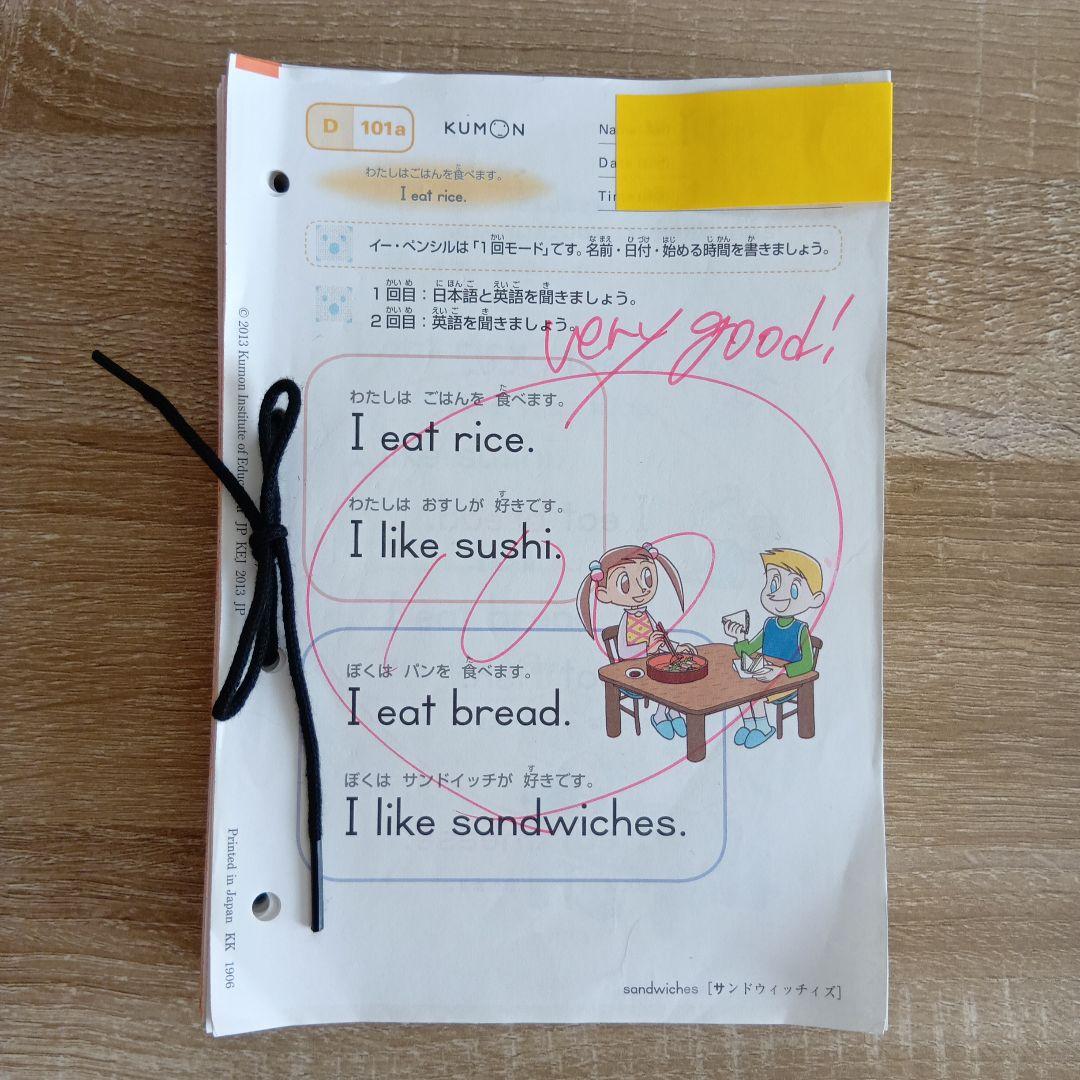 D 101a
KUMON
Na
Da
Ti
わたしはごはんを食べます。
I eat rice.
イー・ペンシルは「1回モード」です。名前・日付・始める時間を書きましょう。
1回目:日本語と英語を聞きましょう。
2回目:英語を聞きましょう。
very good!
わたしは ごはんを 食べます。
I eat rice.
わたしは おすしが 好きです。
I like sushi.
100
ぼくは パンを 食べます。
I eat bread.
ぼくは サンドイッチが 好きです。
I like sandwiches.
sandwiches [サンドウィッチィズ]
© 2013 Kumon Institute of Educ JP KEJ 2013 JP
Printed in Japan KK 1906